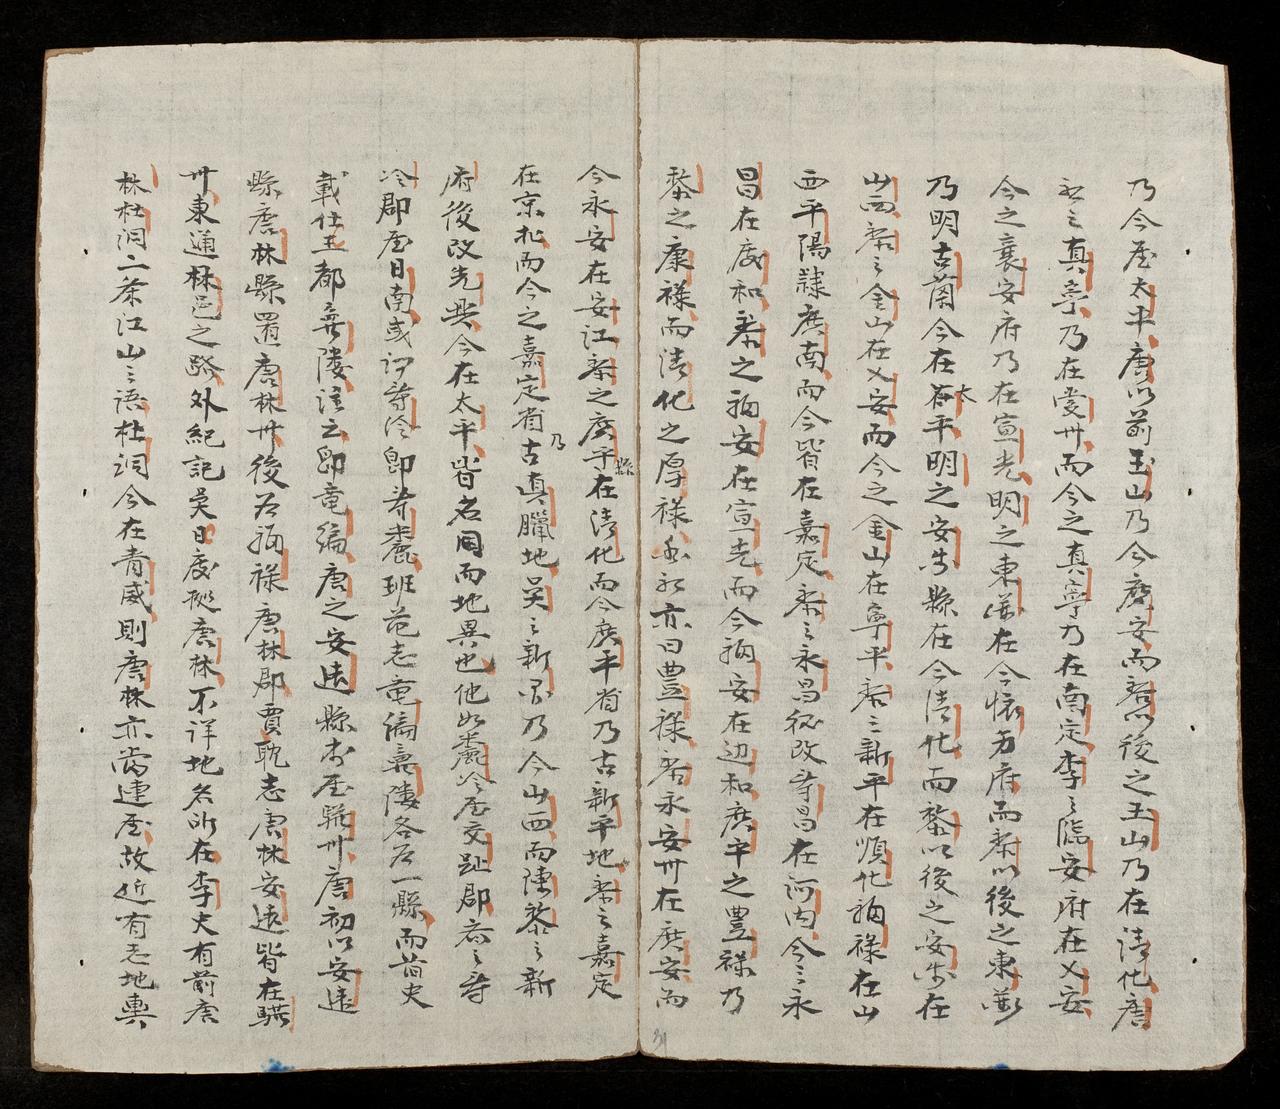 乃今屬太平唐以前玉山乃今廣安而黎以後之玉山乃在清化唐
初之真寧乃在愛州而今之真寧乃在南定李之臨安府在乂安
今之襄安府乃在宣光明之東關在今懷芳府而黎以後之東關
乃明古蘭今在太平明之安寧縣在今清化而黎以後之安寧在
山西黎之金山在乂安而今之金山在寧平黎之新平在順化福祿在山
西平陽隸廣南而今皆在嘉定黎之永昌後改壽昌在河內今之永
昌在慶和黎之福安在宣光而今福安在边和廣平之豊祿乃
黎之康祿而清化之厚祿亦曰豊祿黎永安州在廣安而
今永安在安江黎之廣平縣在清化而今廣平省乃古新平地黎之嘉定
在京北而今之嘉定省乃古真臘地吳之新昌乃今山西而陳黎之新
府後改先興今在太平皆名同而地異也他如麊泠屬交趾郡齊之壽
泠郡屬日南或謂壽泠即麊泠班范志竜編羸𨻻各爲一縣而前史
載仕王都羸𨻻注云即竜編唐之安遠縣本屬驩州唐初以安遠
縣唐林縣置唐林州後爲福祿唐林郡賈耽志唐林安遠皆在驩
州東通林邑之路外紀記吳日慶據唐林不詳地名所在李史有前唐
林杜洞二条江山之語杜洞今在青威則唐林亦當連屬故近有志地輿